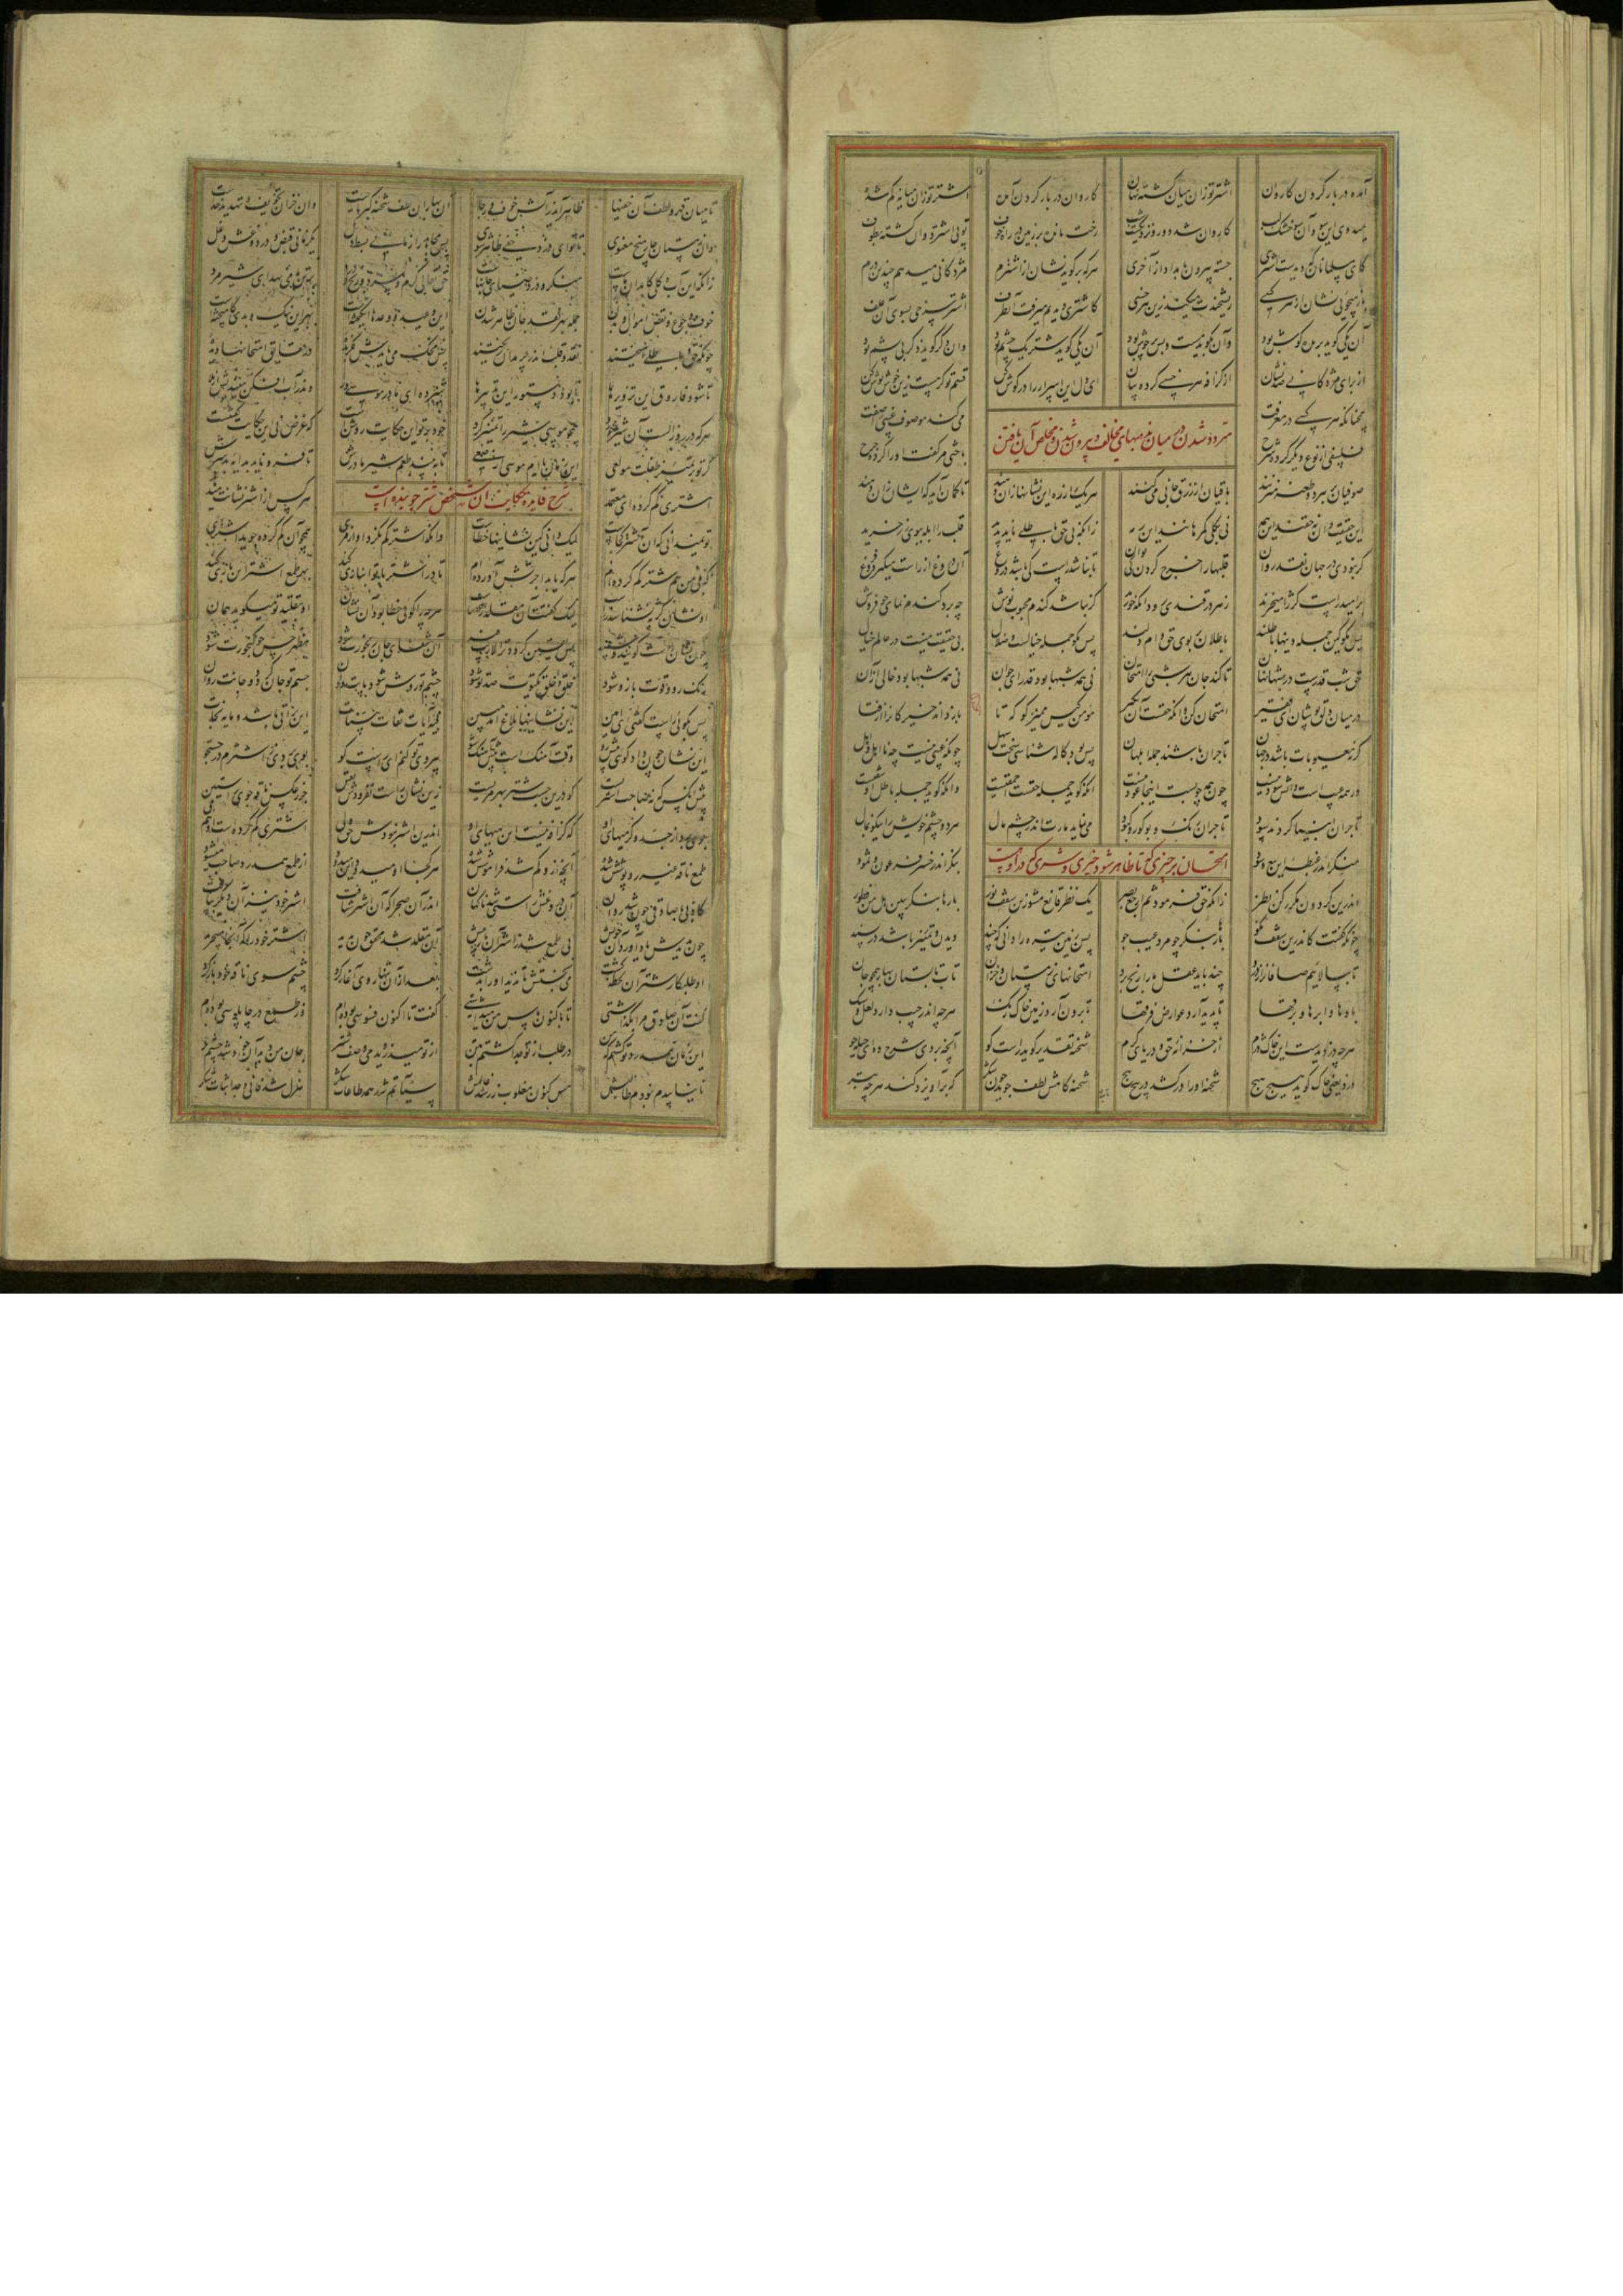 آمده در بار کردن کاروان اشتر تو زان میان گشته نهان کاروان در بار کردن آمده اشتر تو زان میانه گم شده
میدوی این سوی و آن سو خشک لب کاروان شد دور و نزدیکست شب رخت مانده بر زمین در راه خوف تو پی اشتر دوان گشته بطوف
کای مسلمانان که دیدست اشتری جسته بیرون بامداد از آخری هر که برگوید نشان از اشترم مژدگانی میدهم چندین درم
باز میجویی نشان از هر کسی ریشخندت میکند زین هر خسی کاشتری دیدیم میرفت آن طرف اشتر سرخی بسوی آن علف
آن یکی گوید بریده گوش بود وآن گوید بود آن یکی گوید شتر یک چشم بود وان دگر گوید ز گر بی پشم بود
از برای مژدگانی صد نشان از گزافه هر خسی کرده بیان ای دل این اسرار را در گوش کن قسم تو گر هست زین خوش نوش کن
همچنانکه هر کسی در معرفت می کند موصوف غیبی را صفت
متردد شدن در میان مذهبهای مخالف و بیرون شدن و مخلص آن یافتن
فلسفی از نوع دیگر کرده شرح باحثی مر گفت او را کرده جرح
صوفیان بر هر دو طعنه میزنند باقیان از زرق جانی می کنند هر یک از ره این نشانها زان دهند تا گمان آید که ایشان زان دهند
این حقیقت دان نه حقند این همه نی بکلی گمرهانند این رمه زانکه بی حق باطلی ناید پدید قلب را ابله ببوی زر خرید
گر نبودی در جهان نقد روان قلبها را خرج کردن کی توان تا نباشد راست کی باشد دروغ آن دروغ از راست میگیرد فروغ
بر امید راست کژ را میخرند زهر در قندی رود آنگه خورند گر نباشد گندم محبوب نوش چه برد گندم نمای جو فروش
پس مگو کین جمله دینها باطلند باطلان بر بوی حق دام دلند پس مگو جمله خیالست و ضلال بی حقیقت نیست در عالم خیال
حق شب قدرست در شبها نهان تا کند جان هر شبی را امتحان نی همه شبها بود قدر ای جوان نی همه شبها بود خالی از آن
در میان دلق پوشان یک فقیر امتحان کن وانکه حقست آن بگیر مومن کیس ممیز کو که تا باز داند حیزکان را از فتا
گر نه معیوبات باشد در جهان تاجران باشند جمله ابلهان پس بود کالا شناسی سخت سهل چونکه عیبی نیست چه نااهل و اهل
ور همه عیب است دانش سود نیست چون همه چوبست اینجا عود نیست آنکه گوید جمله حقست احمقیست وانکه گوید جمله باطل او شقیست
تاجران انبیا کردند سود تاجران رنگ و بو کور و کبود می نماید مارت اندر چشم مال هر دو چشم خویش را نیکو بمال
منگر اندر غبطه این بیع و سود بنگر اندر خسر فرعون و ثمود
امتحان هر چیزی تا ظاهر شود خیری و شری که دراوست
اندرین گردون مکرر کن نظر زانکه حق فرمود ثم ارجع بصر یک نظر قانع مشو زین سقف نور بارها بنگر ببین هل من فطور
چونکه گفتت کاندرین سقف نکو بارها بنگر چو مرد عیب جو پس زمین تیره را دانی که چند دیدن و تمییز باشد در پسند
تا بپالاییم صافان را ز درد چند باید عقل ما را رنج برد امتحانهای زمستان و خزان تاب تابستان بهار همچو جان
بادها و ابرها و برقها تا پدید آرد عوارض فرقها تا برون آرد زمین خاک رنگ هرچه اندر جیب دارد لعل و سنگ
هرچه دزدیدست این خاک دژم از خزانه حق و دریای کرم شحنه تقدیر گوید راست گو آنچه بردی شرح ده ای حیله جو
دزد یعنی خاک گوید هیچ هیچ شحنه او را در کشد در پیچ پیچ شحنه گاهش لطف گوید چون شکر گه برآویزد کند هر چه بتر
تا میان قهر و لطف آن خفیها ظاهر آید ز آتش خوف و رجا آن بهاران لطف شحنه کبریاست وان خزان تخویف و تهدید خداست
وان زمستان چارمیخ معنوی تا تو ای دزد خفی ظاهر شوی پس مجاهد را زمانی بسط دل یکزمانی قبض و درد و غش و غل
زانکه این آب و گلی کابدان ماست منکر و دزد و ضیای جانهاست حق تعالی گرم و سرد و رنج و درد بر تن ما می نهد ای شیر مرد
خوف و جوع و نقص اموال و بدن جمله بهر نقد جان ظاهر شدن این وعید و وعدها انگیختست بهر این نیک و بدی کامیختست
چونکه حق و باطلی آمیختند نقد و قلب اندر حرمدان ریختند پس محک می بایدش بگزیده در حقایق امتحانها دیده
تا شود فاروق این تزویرها تا بود دستور این تدبیرها شیر ده ای مادر موسی ورا واندر آب افکن میندیش از بلا
هر که در روز الست آن شیر خورد همچو موسی شیر را تمییز کرد خود بر تو این حکایت روشنست که غرض نی این حکایت گفتنست
گر تو بر تمییز طفلت مولعی این زمان یا ام موسی ارضعی تا ببیند طعم شیر مادرش تا فرو ناید بدایه بد سرش
اشتری گم کرده ای معتمد هر کس از اشتر نشانت میدهد
شرح فایده حکایت آن شخص شتر جوینده است
تو نمیدانی که آن اشتر کجاست لیک دانی کین نشانیها خطاست وانکه اشتر گم نکرد او از مری همچو آن گم کرده جوید اشتری
که بلی من هم شتر گم کرده ام هر که یابد اجرتش آورده ام تا در اشتر با تو انبازی کند بهر طمع اشتر این بازی کند
او نشان کژ بنشناسد ز راست لیک گفتت آن مقلد را عصاست هرچه را گویی خطا بود آن نشان او بتقلید تو میگوید همان
چون نشان راست گویند و شبیه پس یقین گردد ترا لاریب فیه آن شفای جان رنجورت شود مظهر حس چو گنجورت شود
رنگ رو و قوت بازو شود خلق و خلق یکتوت صد تو شود چشم تو روشن شود پایت دوان جسم تو جان گردد و جانت روان
پس بگویی راست گفتی ای امین این نشانیها بلاغ آمد مبین فیه آیات ثقات بینات این براتی باشد و نجات
این نشان چون داد گویی پیش رو وقت آهنگ است پیش آهنگ شو پیروی تو کنم ای راست گو بوی بردی ز اشترم در جستجو
پیش آنکس که نه صاحب اشتریست کو درین جست شتر بهر مریست زین نشان راست نفزودش یقین جز ز عکس ناقه جوی راستین
بوی برد از جد و گرمیهای او که گزافه نیست این هیهای او اندرین اشتر نبودش حق ولی اشتری گم کرده است او هم بلی
طمع ناقه غیر روپوشش شده آنچه ازو گم شد فراموشش شده هر کجا او میدود این میدود از طمع همدرد صاحب میشود
کاذبی با صادقی چون شد روان آن دروغش راستی شد ناگهان اندر آن صحرا که آن اشتر شتافت اشتر خود نیز آن دیگر بیافت
چون بدیدش یاد آورد آن خویش بی طمع شد ز اشتر آن یار و خویش آن مقلد شد محقق چون بدید اشتر خود را که آنجا میچرید
او طلبکار شتر آن لحظه گشت می نجستش تا ندید او را بدشت بعد از آن تنها روی آغاز کرد چشم سوی ناقه خود باز کرد
گفت آن صادق مرا بگذاشتی تا باکنون پاس من میداشتی گفت تا اکنون فسوسی بوده ام وز طمع در چاپلوسی بوده ام
این زمان همدرد تو گشتم که من در طلب از تو جدا گشتم بتن از تو میدزدیدمی وصف شتر جان من دید آن خود شد چشم پر
تا نیابیدم نبودم طالبش مس کنون مغلوب شد زر غالبش سیئاتم شد همه طاعات شکر هزل شد فانی و جد اثبات شکر